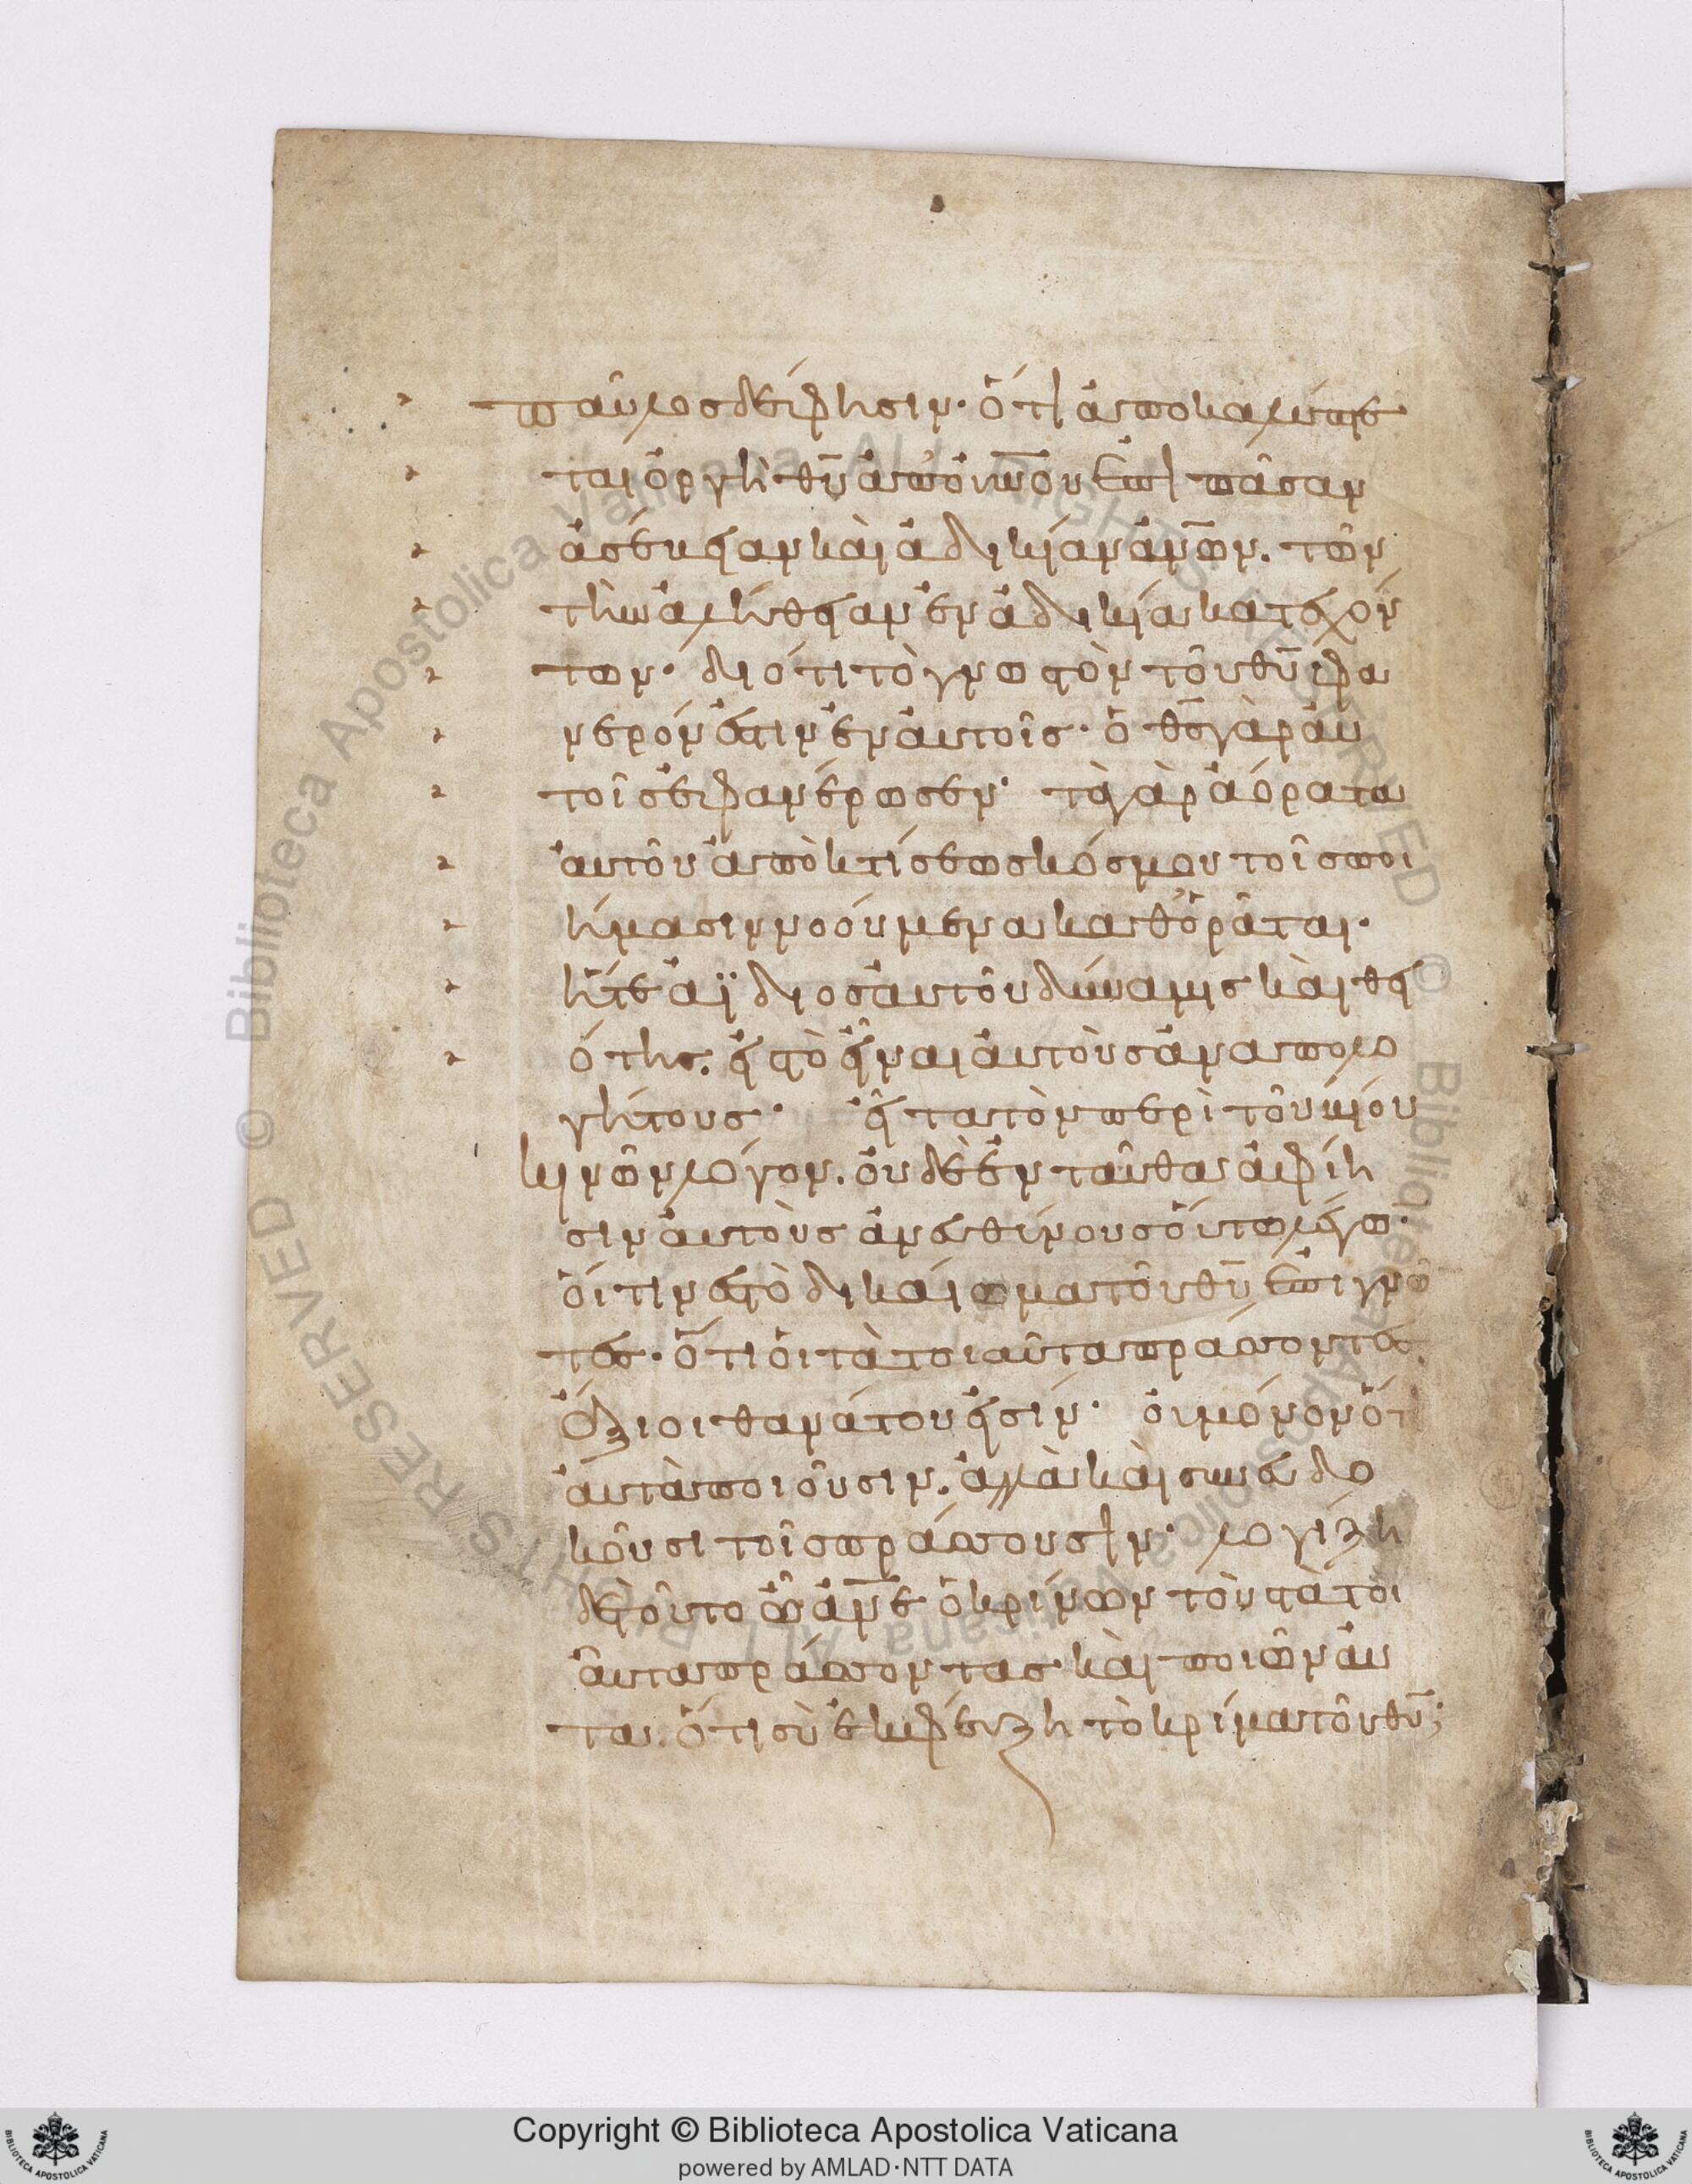 παῦλος δείξησιν· ὅτι ἀποκαλύπτε
ται ὀργὴ θῡ ἀπ' ὀυνο̄υ ἐπὶ πᾶσαν
ἀσέβειαν καὶ ἀδικίαν ἀνω̄ν. τῶν
τὴν ἀλήθειαν ἐν ἀδικία κατεχόν
των· διότι τὸ γνωστὸν τοῦ θῡ φα
νερόν ἐστιν ἐν ἀυτοῖς· ὁ θς̄ γὰρ ἀυ
τοῖς ἐφανέρωσεν· τὰ γὰρ ἀόρατα
ἀυτοῦ ἀπὸ κτίσεως κόσμου τοῖς ποι
ήμασιν νοούμενα καθορᾶται·
ἥτε ἀΐδιος ἀυτοῦ δύναμις καὶ θει
ότης. εἰς τὸ εἶναι ἀυτοὺς ἀναπολο
γήτους· εἶτα τὸν περὶ τοῦ υἱοῦ
κινῶν λόγον. ὀυδὲ ἐνταῦθα ἀφίη
σιν ἀυτοὺς ἀνευθύνους ὅυτω λέγω·
ὅιτινες τὸ δικαίωμα τοῦ θῡ ἐπιγνό
τες· ὅτι ὁι τὰ τοιαῦτα πράσσοντες
ἄξιοι θανάτου εἰσίν· ὀυ μόνον ὅτι
ἀυτὰ ποιοῦσιν. ἀλλὰ καὶ συνευδο
κοῦσι τοῖς πράσσουσιν· λογίζη
δὲ τοῦτο ὦ ἀνε̄ ὁ κρίνων τοὺς τὰ τοι
ἀυτα πράσσοντας καὶ ποιῶν ἀυ
τα. ὅτι σὺ ἐκφεύξη τὸ κρίμα τοῦ θῡ;
Copyright © Biblioteca Apostolica Vaticana
powered by AMLAD·NTT DATA